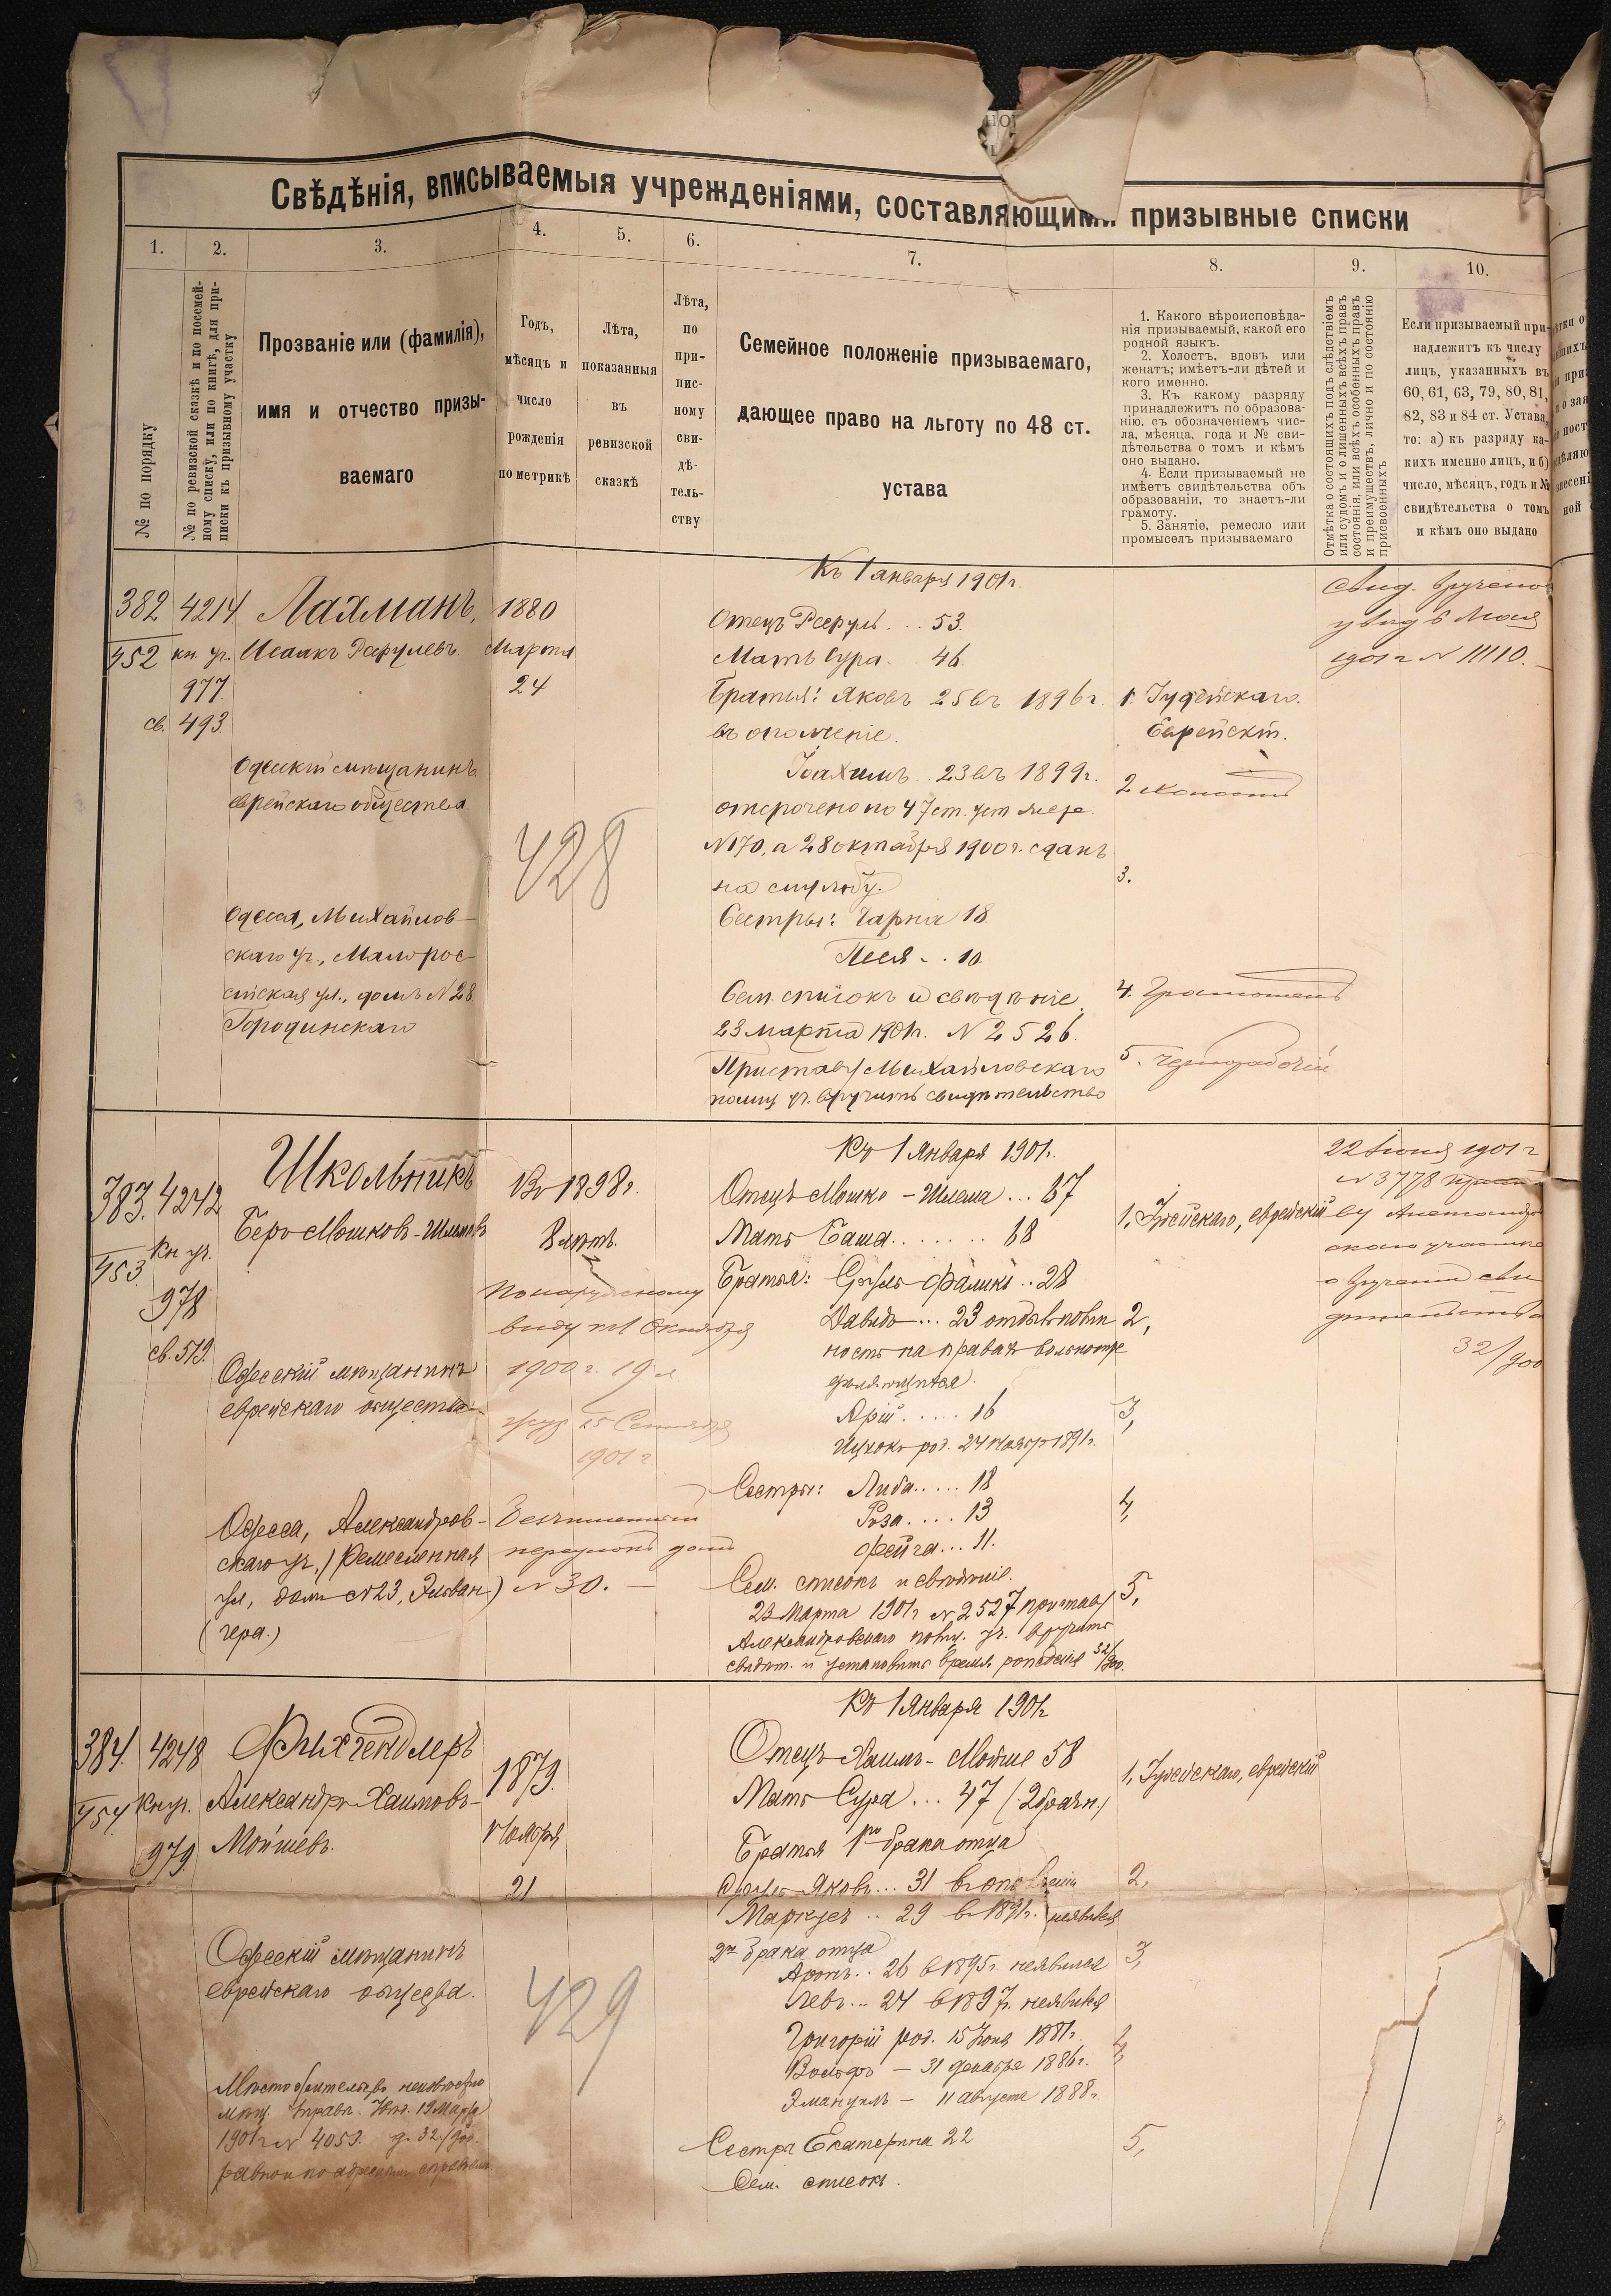 Свѣдѣнія, вписываемыя учрежденіями, составляющими призывные списки
1.
2.
3.
4.
5.
6.
7.
8.
9.
10.
№ по порядку
№ по ревизской сказкѣ и по посемей-
ному списку, или по книгѣ, для при-
писки къ призывному участку
Прозваніе или (фамилія),
имя и отчество призы-
ваемаго
Годъ,
мѣсяцъ и
число
рожденія
по метрикѣ
Лѣта,
показанныя
въ
ревизской
сказкѣ
Лѣта,
по
при-
пис-
ному
сви-
дѣ-
тель-
ству
Семейное положеніе призываемаго,
дающее право на льготу по 48 ст.
устава
1. Какого вѣроисповѣда-
нія призываемый, какой его
родной языкъ.
2. Холостъ, вдовъ или
женатъ; имѣетъ-ли дѣтей и
кого именно.
3. Къ какому разряду
принадлежитъ по образова-
нію, съ обозначеніемъ чис-
ла, мѣсяца, года и № сви-
дѣтельства о томъ и кѣмъ
оно выдано.
4. Если призываемый не
имѣетъ свидѣтельства объ
образованіи, то знаетъ-ли
грамоту.
5. Занятіе, ремесло или
промыселъ призываемаго
Отмѣтка о состоящихъ подъ слѣдствіемъ
или судомъ и о лишенныхъ всѣхъ правъ
состоянія, или всѣхъ особенныхъ правъ
и преимуществъ, лично и по состоянію
присвоенныхъ
Если призываемый при-
надлежитъ къ числу
лицъ, указанныхъ въ
60, 61, 63, 79, 80, 81,
82, 83 и 84 ст. Устава,
то: а) къ разряду ка-
кихъ именно лицъ, и б)
число, мѣсяцъ, годъ и №
свидѣтельства о томъ
и кѣмъ оно выдано
382
452
4214
кн. уч.
977.
св. 493.
Лахманъ,
Исаакъ Рафулевъ.
Одесскій мѣщанинъ
еврейскаго общества.
Одесса, Михайлов-
скаго уч., Малорос-
сійская ул., домъ №28
Городинскаго
1880
Марта
24
428
Къ 1 января 1901 г.
Отецъ Рафулъ . . . 53.
Мать Сура . . 46.
Братья: Яковъ 25 въ 1896 г.
въ ополченіе.
Іоахимъ . . 23 въ 1899 г.
отсрочено по 47 ст. уст
№170, а 28 октября 1900 г. сданъ
на службу.
Сестры: Чарна 18
Песя - . 10
Сем. списокъ и свѣдѣніе
23 Марта 1901 г. № 2526.
Приставу Михайловскаго
полиц уч. вручить свидѣтельство
1. Іудейскаго.
Еврейскій.
2 холостъ
3.
4. Грамотенъ
5. Чернорабочій
Свид. вручено
1901 г № 11110.
383.
453.
4242
Кн уч.
978
св. 519.
Школьникъ
Беръ Мошковъ-Шлемовъ
Одесскій мѣщанинъ
еврейскаго общества
Одесса, Александров-
скаго уч., Ремесленная
ул, домъ №23,
Въ 1898 г.
8 лѣтъ.
По наружному
виду къ 1 Октября
1900 г. 19 л
25 Сентября
1901 г
переулокъ домъ
№ 30. —
Къ 1 Января 1901 г.
Отецъ Мошко-Шлема ... 67
Мать Баша . . . . . . . 68
Братья: Сруль Фаликъ . . 28
Давидъ ... 23 отбыв повин
ность на правахъ вольноопре
дѣляющагося.
Арій . . . . . 16
Ицхокъ род. 24 Ноября 1891 г.
Сестры: Либа . . . . . 18
Роза . . . . 13
Фейга ... 11.
Сем. списокъ и свѣдѣніе.
23 Марта 1901 г № 2527 приставу
Александровскаго полиц. уч. вручить
свидѣт. и установить время рожденія 32/900.
1, Іудейскаго, еврейскій
2,
3,
4,
5,
22 Іюня 1901 г
№ 3778
ву Александров
скаго участка
о врученіи сви
дѣтельства
32/900
384.
454
4248
Кн уч.
979.
Фихгендлеръ
Александръ Хаимовъ-
Мойшевъ.
Одесскій мѣщанинъ
еврейскаго общества.
Мѣсто жительства неизвѣстно
мѣщ. Управы 19 Марта
1901 г № 4053. д. 32/900.
1879.
Ноября
21
429
Къ 1 Января 1901 г
Отецъ Хаимъ-Мойше 58
Мать Сура ... 47 (2 брачн.)
Братья 1го брака отца
Яковъ ... 31 въ ополченіи
Маркусъ . . 29 въ 1891 г. неявился
2го брака отца
Аронъ . . 26 въ 1895 г. неявился
Левъ ... 24 въ 1897 г. неявился
Григорій род. 15 Іюня 1881 г.
Вольфъ — 31 декабря 1886 г.
Эмануилъ — 11 августа 1888 г
Сестра Екатерина 22
Сем. списокъ.
1, Іудейскаго, еврейскій
2,
3,
4,
5,